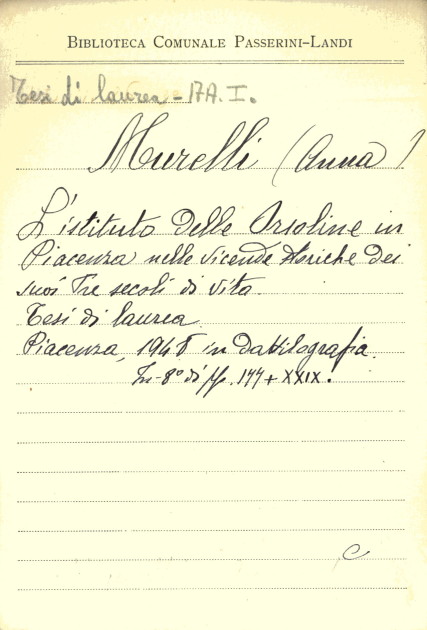 BIBLIOTECA COMUNALE PASSERINI-LANDI
Tesi di laurea - 17A. I.
Murelli (Anna)
L'istituto delle Orsoline in
Piacenza nelle vicende storiche dei
suoi tre secoli di vita.
Tesi di laurea
Piacenza, 1948 in dattilografia.
In-8° di pp. 144 + XXIX.
C